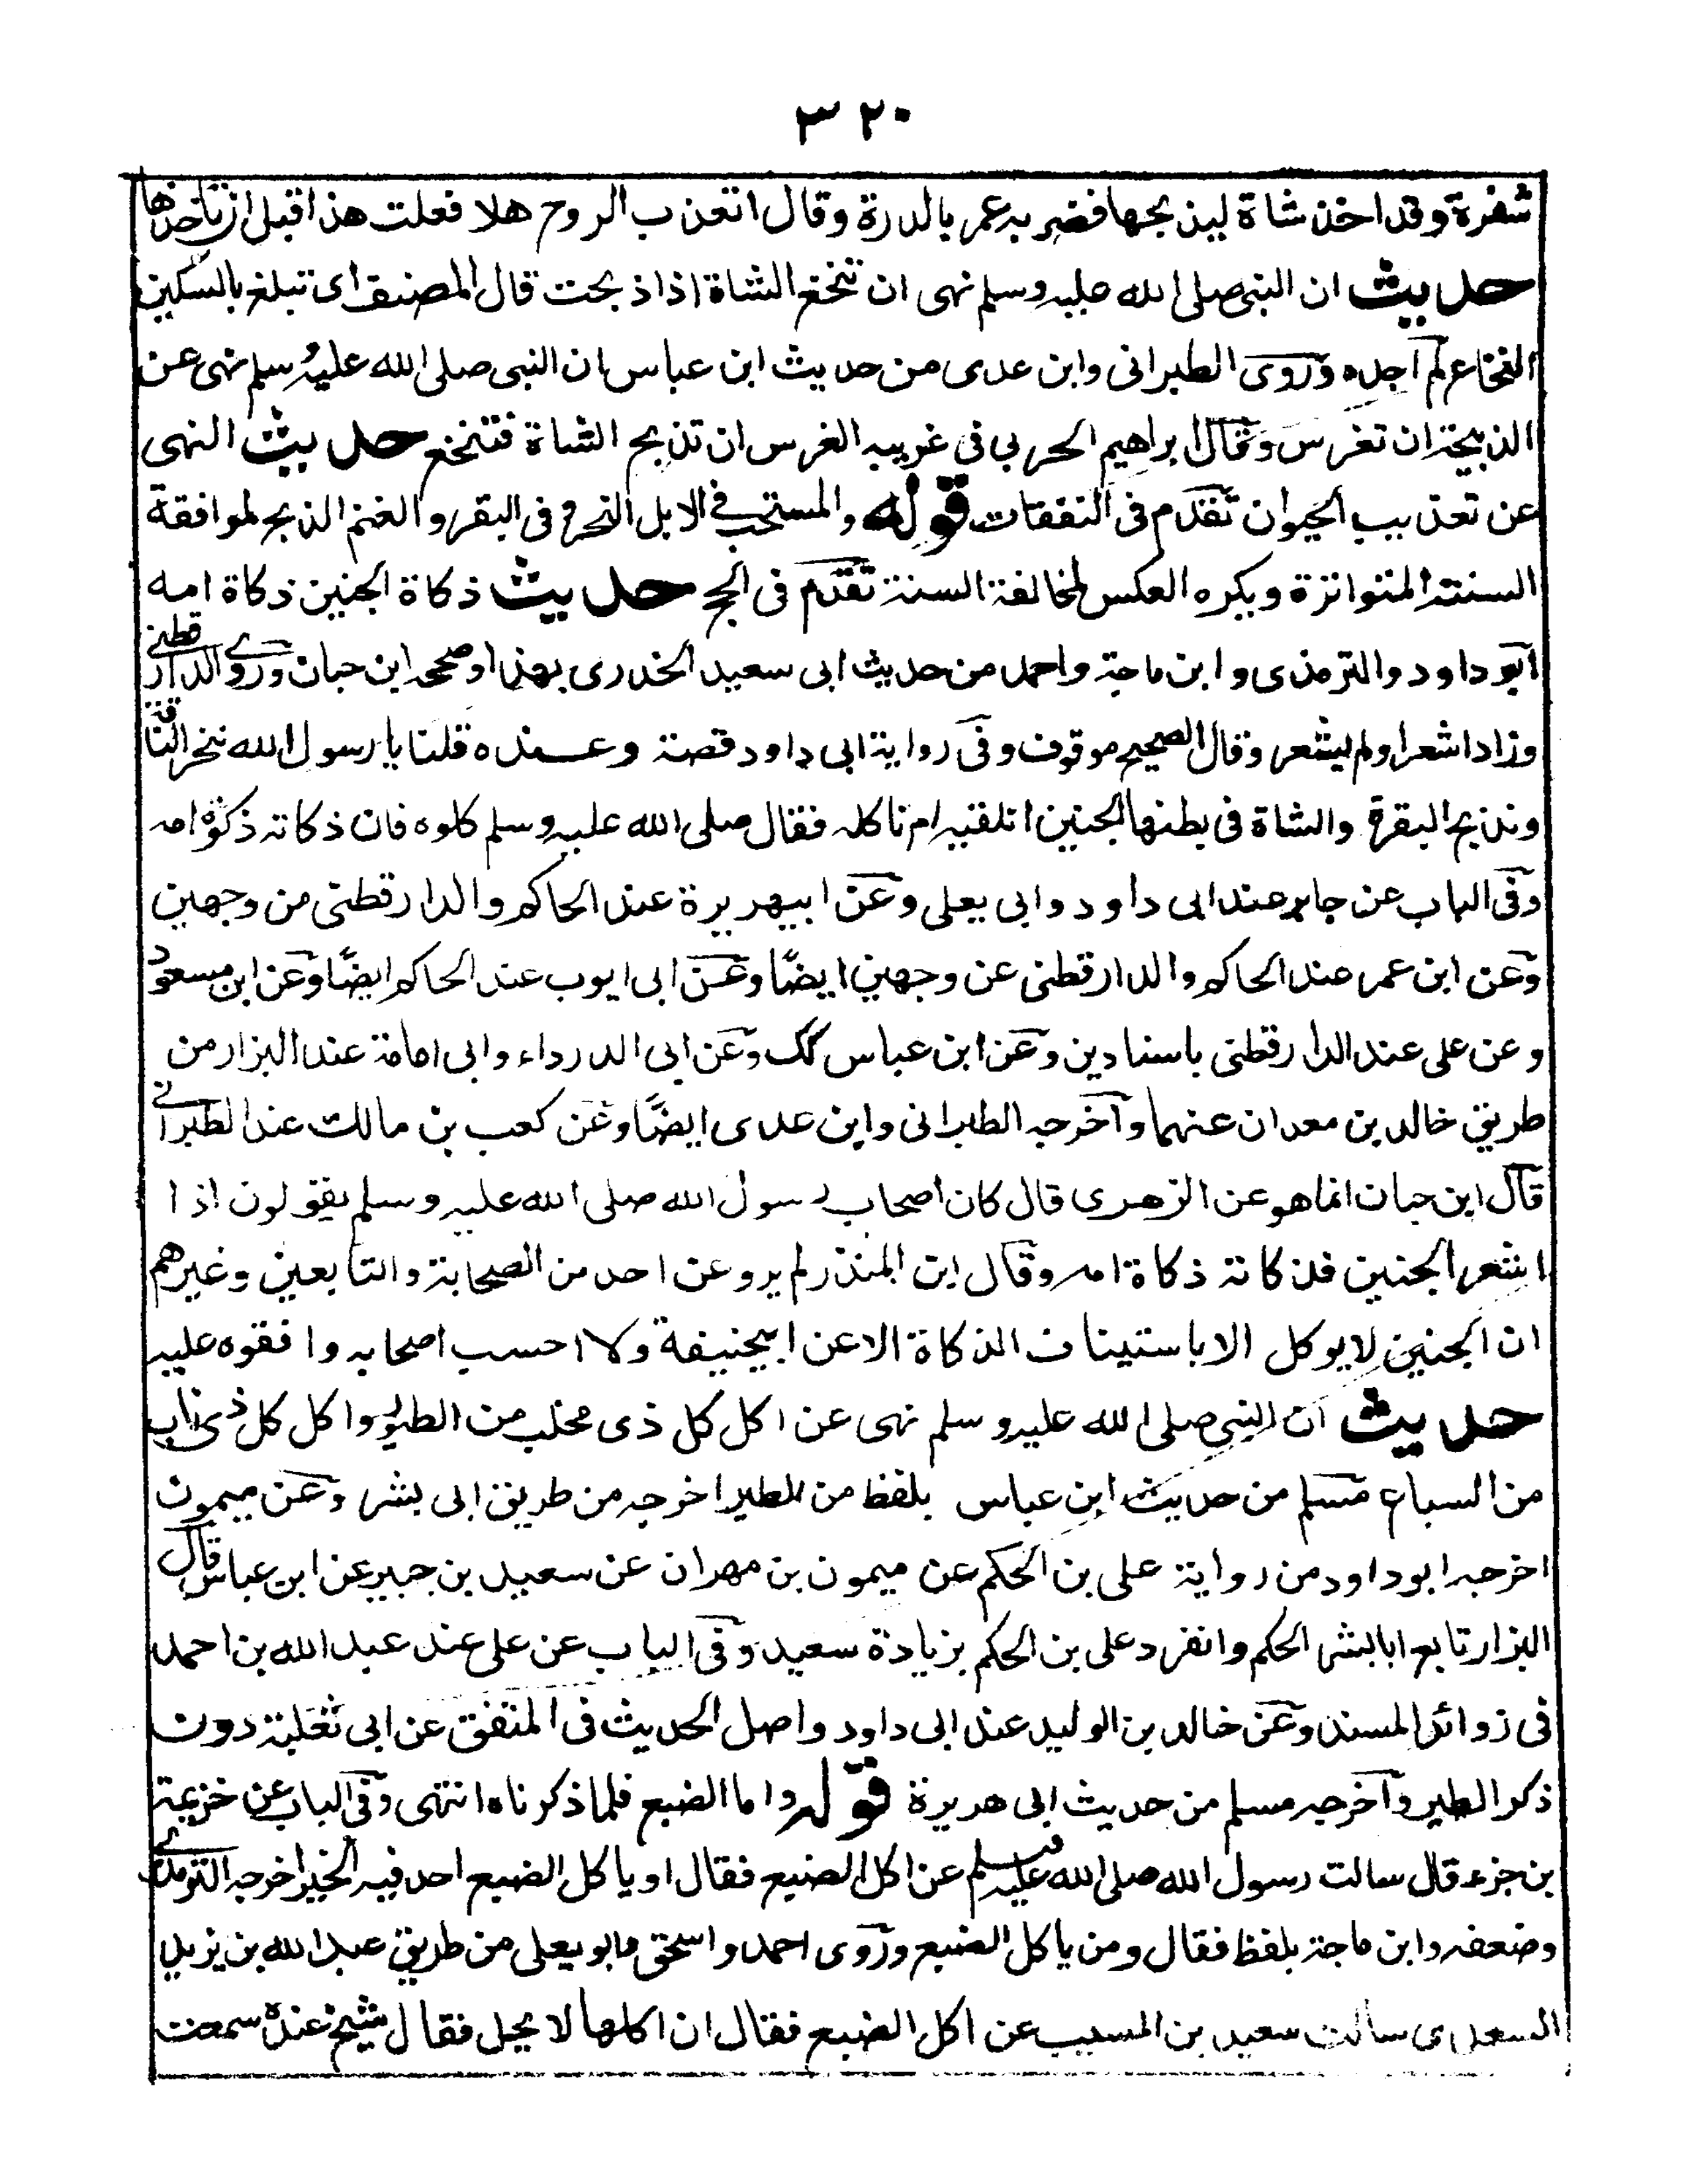 ٣٢٠
شفرة وقد اخذ شاة ليذبحها فضربه عمر بالدرة وقال اتعذب الروح هلا فعلت هذا قبل ان تاخذها
حديث ان النبي صلى الله عليه وسلم نهى ان تنخع الشاة اذا ذبحت قال المصنف اى تبلغ بالسكين
النخاع لم اجده وروى الطبرانى وابن عدى من حديث ابن عباس ان النبى صلى الله عليه وسلم نهى عن
الذبيحة ان تفرس وقال ابراهيم الحربي فى غريبه الفرس ان تذبح الشاة فتنخع حديث النهى
عن تعذيب الحيوان تقدم فى النفقات قوله والمستحب فى الابل النحر وفى البقر والغنم الذبح لموافقة
السنة المتواترة ويكره العكس لمخالفة السنة تقدم فى الحج حديث ذكاة الجنين ذكاة امه
ابو داود والترمذى وابن ماجة واحمد من حديث ابى سعيد الخدرى بهذا وصححه ابن حبان وروى الدارقطنى
وزاد اشعر اولم يشعر وقال الصحيح موقوف وفى رواية ابى داود قصة وعنده قلنا يا رسول الله ننحر الناقة
ونذبح البقرة والشاة فى بطنها الجنين انلقيه ام ناكله فقال صلى الله عليه وسلم كلوه فان ذكاته ذكوة امه
وفى الباب عن جابر عند ابى داود وابى يعلى وعن ابيهريرة عند الحاكم والدارقطنى من وجهين
وعن ابن عمر عند الحاكم والدارقطنى عن وجهين ايضًا وعن ابى ايوب عند الحاكم ايضًا وعن ابن مسعود
وعن على عند الدارقطنى باسنادين وعن ابن عباس كك وعن ابى الدرداء وابى امامة عند البزار من
طريق خالد بن معدان عنهما واخرجه الطبرانى وابن عدى ايضًا وعن كعب بن مالك عند الطبرانى
قال ابن حبان انما هو عن الزهرى قال كان اصحاب رسول الله صلى الله عليه وسلم يقولون اذا
اشعر الجنين فذكاته ذكاة امه وقال ابن المنذر لم يرو عن احد من الصحابة والتابعين وغيرهم
ان الجنين لا يوكل الا باستيناف الذكاة الا عن ابيحنيفة ولا احسب اصحابه وافقوه عليه
حديث ان النبى صلى الله عليه وسلم نهى عن اكل كل ذى مخلب من الطيور واكل كل ذى ناب
من السباع مسلم من حديث ابن عباس بلفظ من الطير اخرجه من طريق ابى بشر وعن ميمون
اخرجه ابو داود من رواية على بن الحكم عن ميمون بن مهران عن سعيد بن جبير عن ابن عباس قال
البزار تابع ابا بشر الحكم وانفرد على بن الحكم بزيادة سعيد وفى الباب عن على عند عبد الله بن احمد
فى زوائد المسند وعن خالد بن الوليد عند ابى داود واصل الحديث فى المتفق عن ابى ثعلبة دون
ذكر الطير واخرجه مسلم من حديث ابى هريرة قوله واما الضبع فلما ذكرناه انتهى وفى الباب عن خزيمة
بن جزء قال سالت رسول الله صلى الله عليه وسلم عن اكل الضبع فقال او ياكل الضبع احد فيه الخير اخرجه الترمذى
وضعفه وابن ماجة بلفظ فقال ومن ياكل الضبع وروى احمد واسحق وابو يعلى من طريق عبد الله بن يزيد
السعدى سالت سعيد بن المسيب عن اكل الضبع فقال ان اكلها لا يحل فقال شيخ عنده سمعت